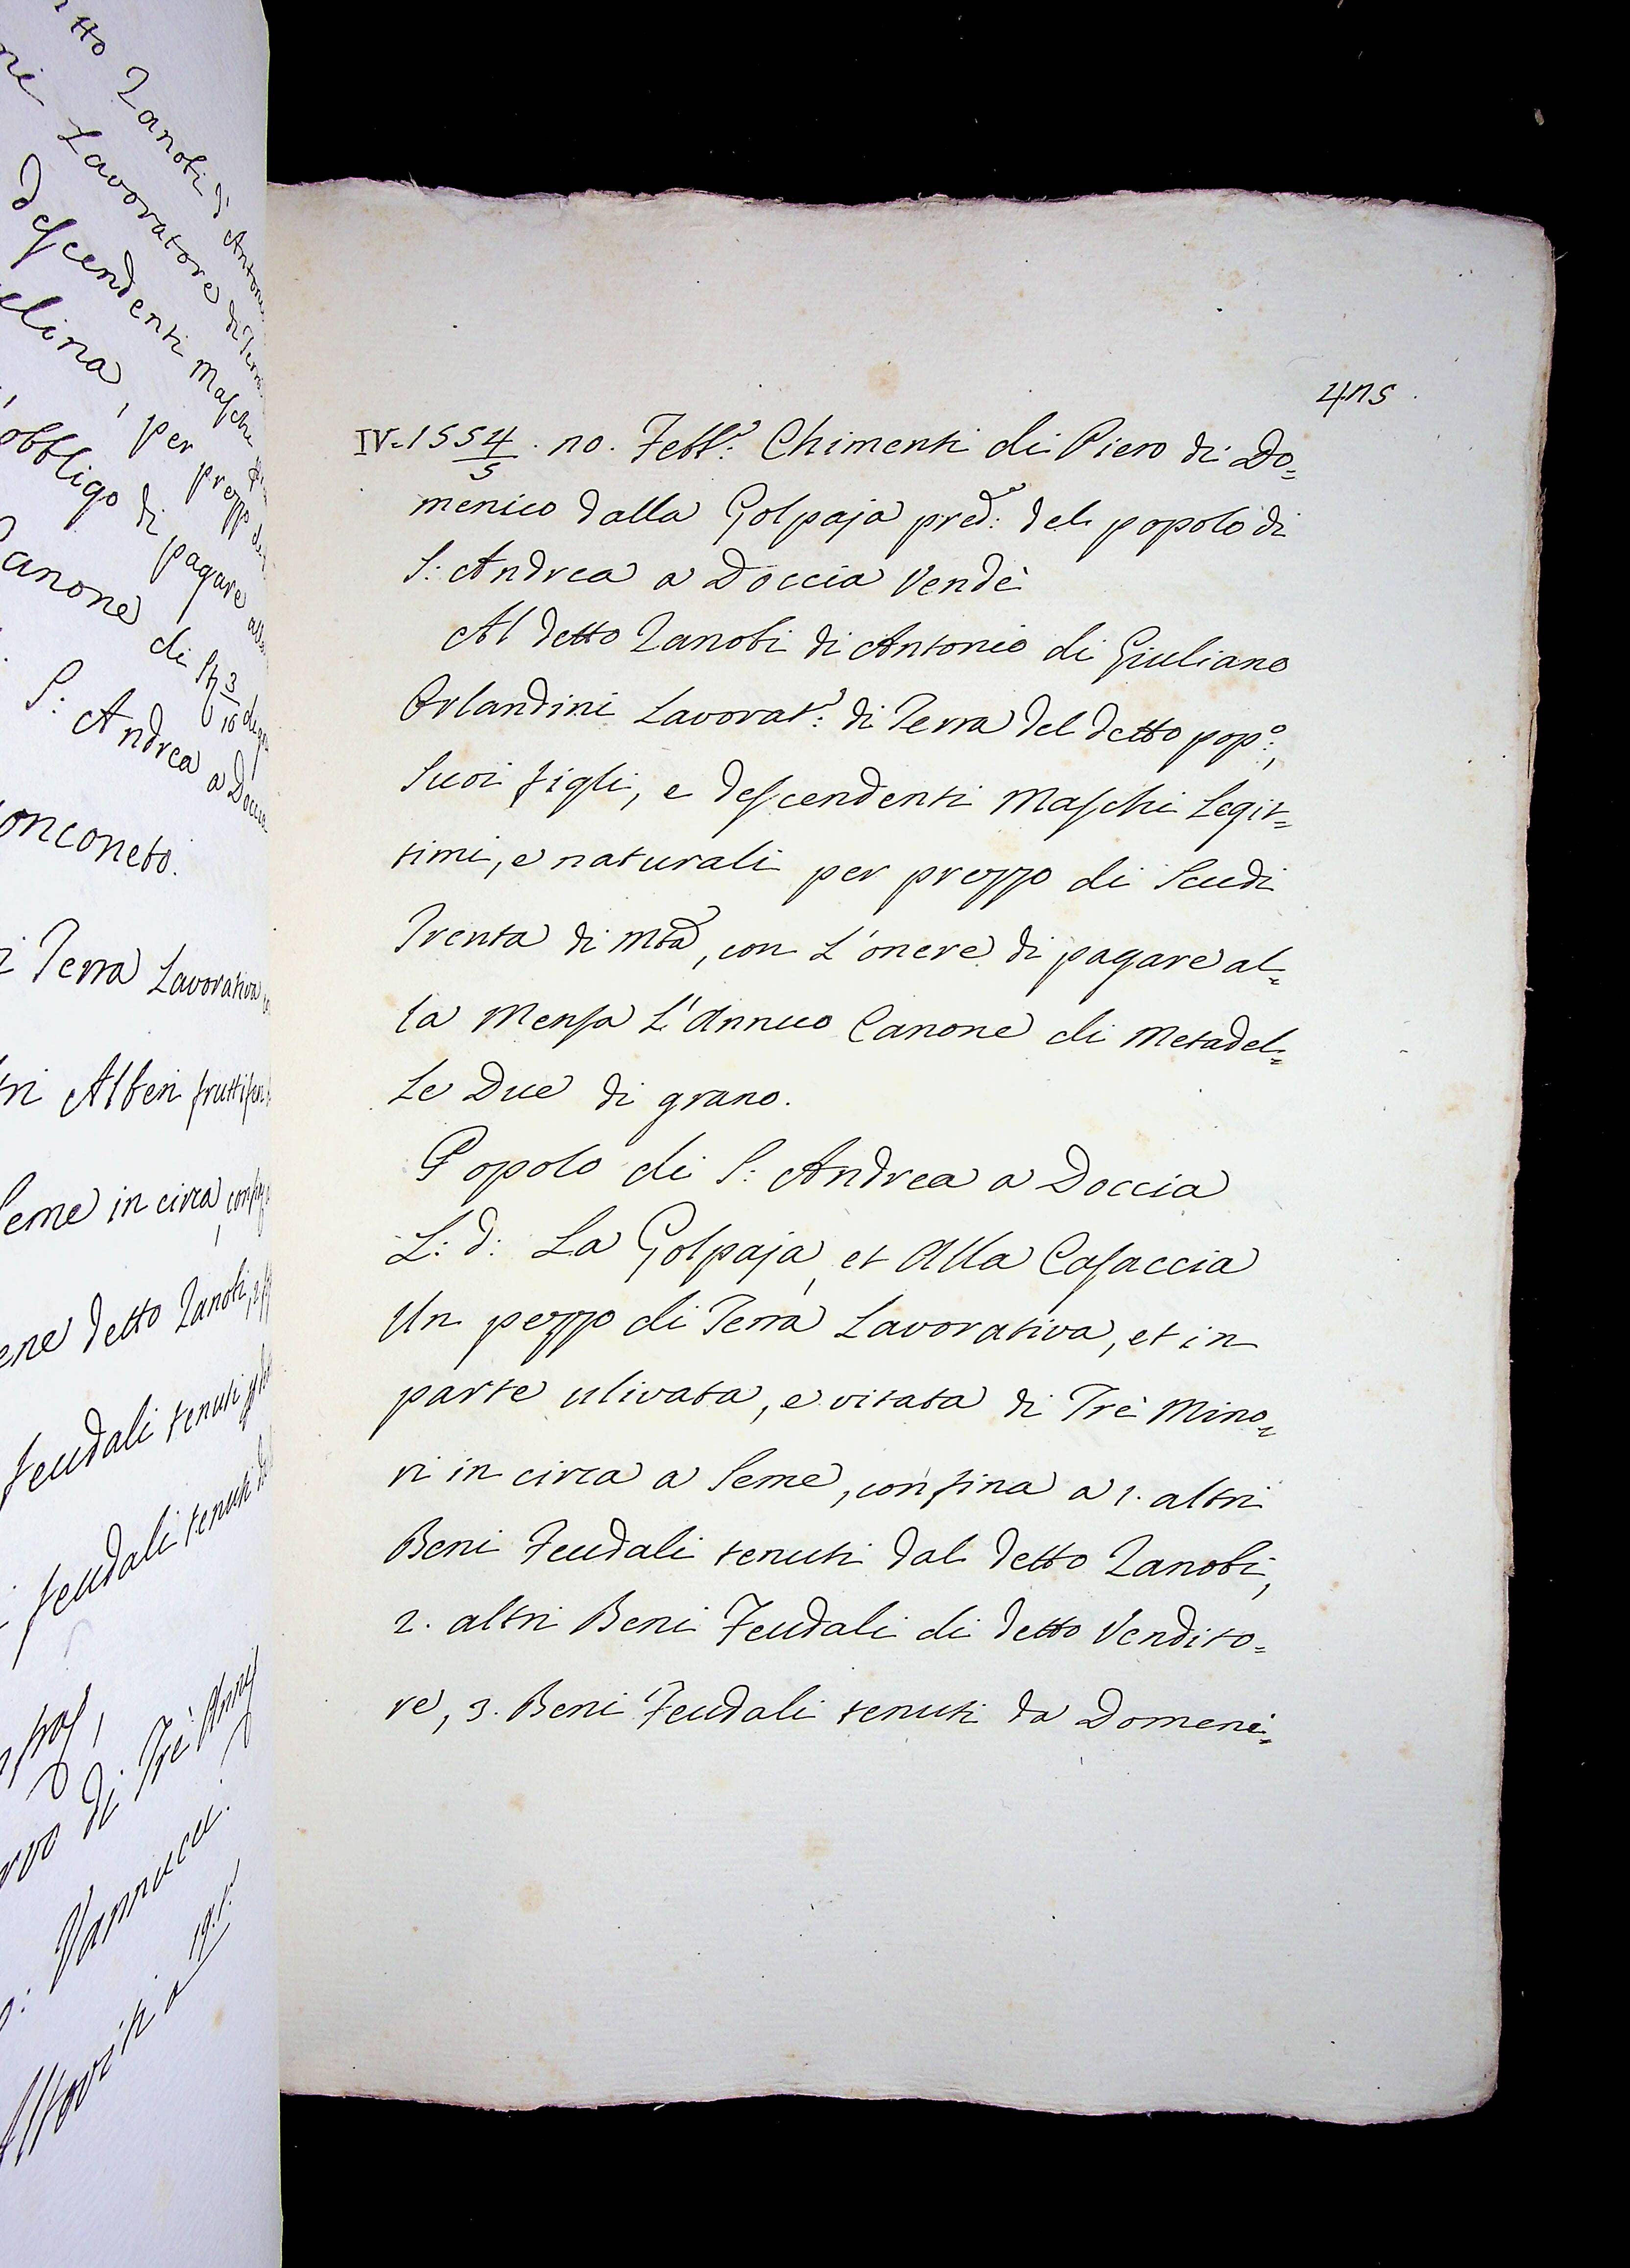 tto Zanobi di Antonio
ni Lavoratore di Terra
descendenti Maschi
elina, per prezzo
obbligo di pagare alla
Canone di St 3/16 di
S: Andrea a Doccia
onconeto.
i Terra Lavorativa
tri Alberi fruttiferi
Seme in circa,
ene detto Zanobi,
feudali tenuti
feudali tenuti
di Trè Anni
Vannucci.
415
IV. 1554/5. 10. Febb.º Chimenti di Piero di Do=
menico dalla Golpaja pred.º del popolo di
S: Andrea a Doccia Vendè
Al detto Zanobi di Antonio di Giuliano
Orlandini Lavorat.e: di Terra del detto pop.º,
Suoi figli, e descendenti Maschi Legit=
timi, e naturali per prezzo di Scudi
Trenta di mta, con L'onere di pagare al=
la Mensa L'Annuo Canone di Metadel=
le Due di grano.
Popolo di S: Andrea a Doccia
L: d: La Golpaja, et Alla Casaccia
Un pezzo di Terra Lavorativa, et in
parte ulivata, e vitata di Trè Mino=
ri in circa a Seme, confina a 1. altri
Beni Feudali tenuti dal detto Zanobi,
2. altri Beni Feudali di detto Vendito=
re, 3. Beni Feudali tenuti da Domeni=